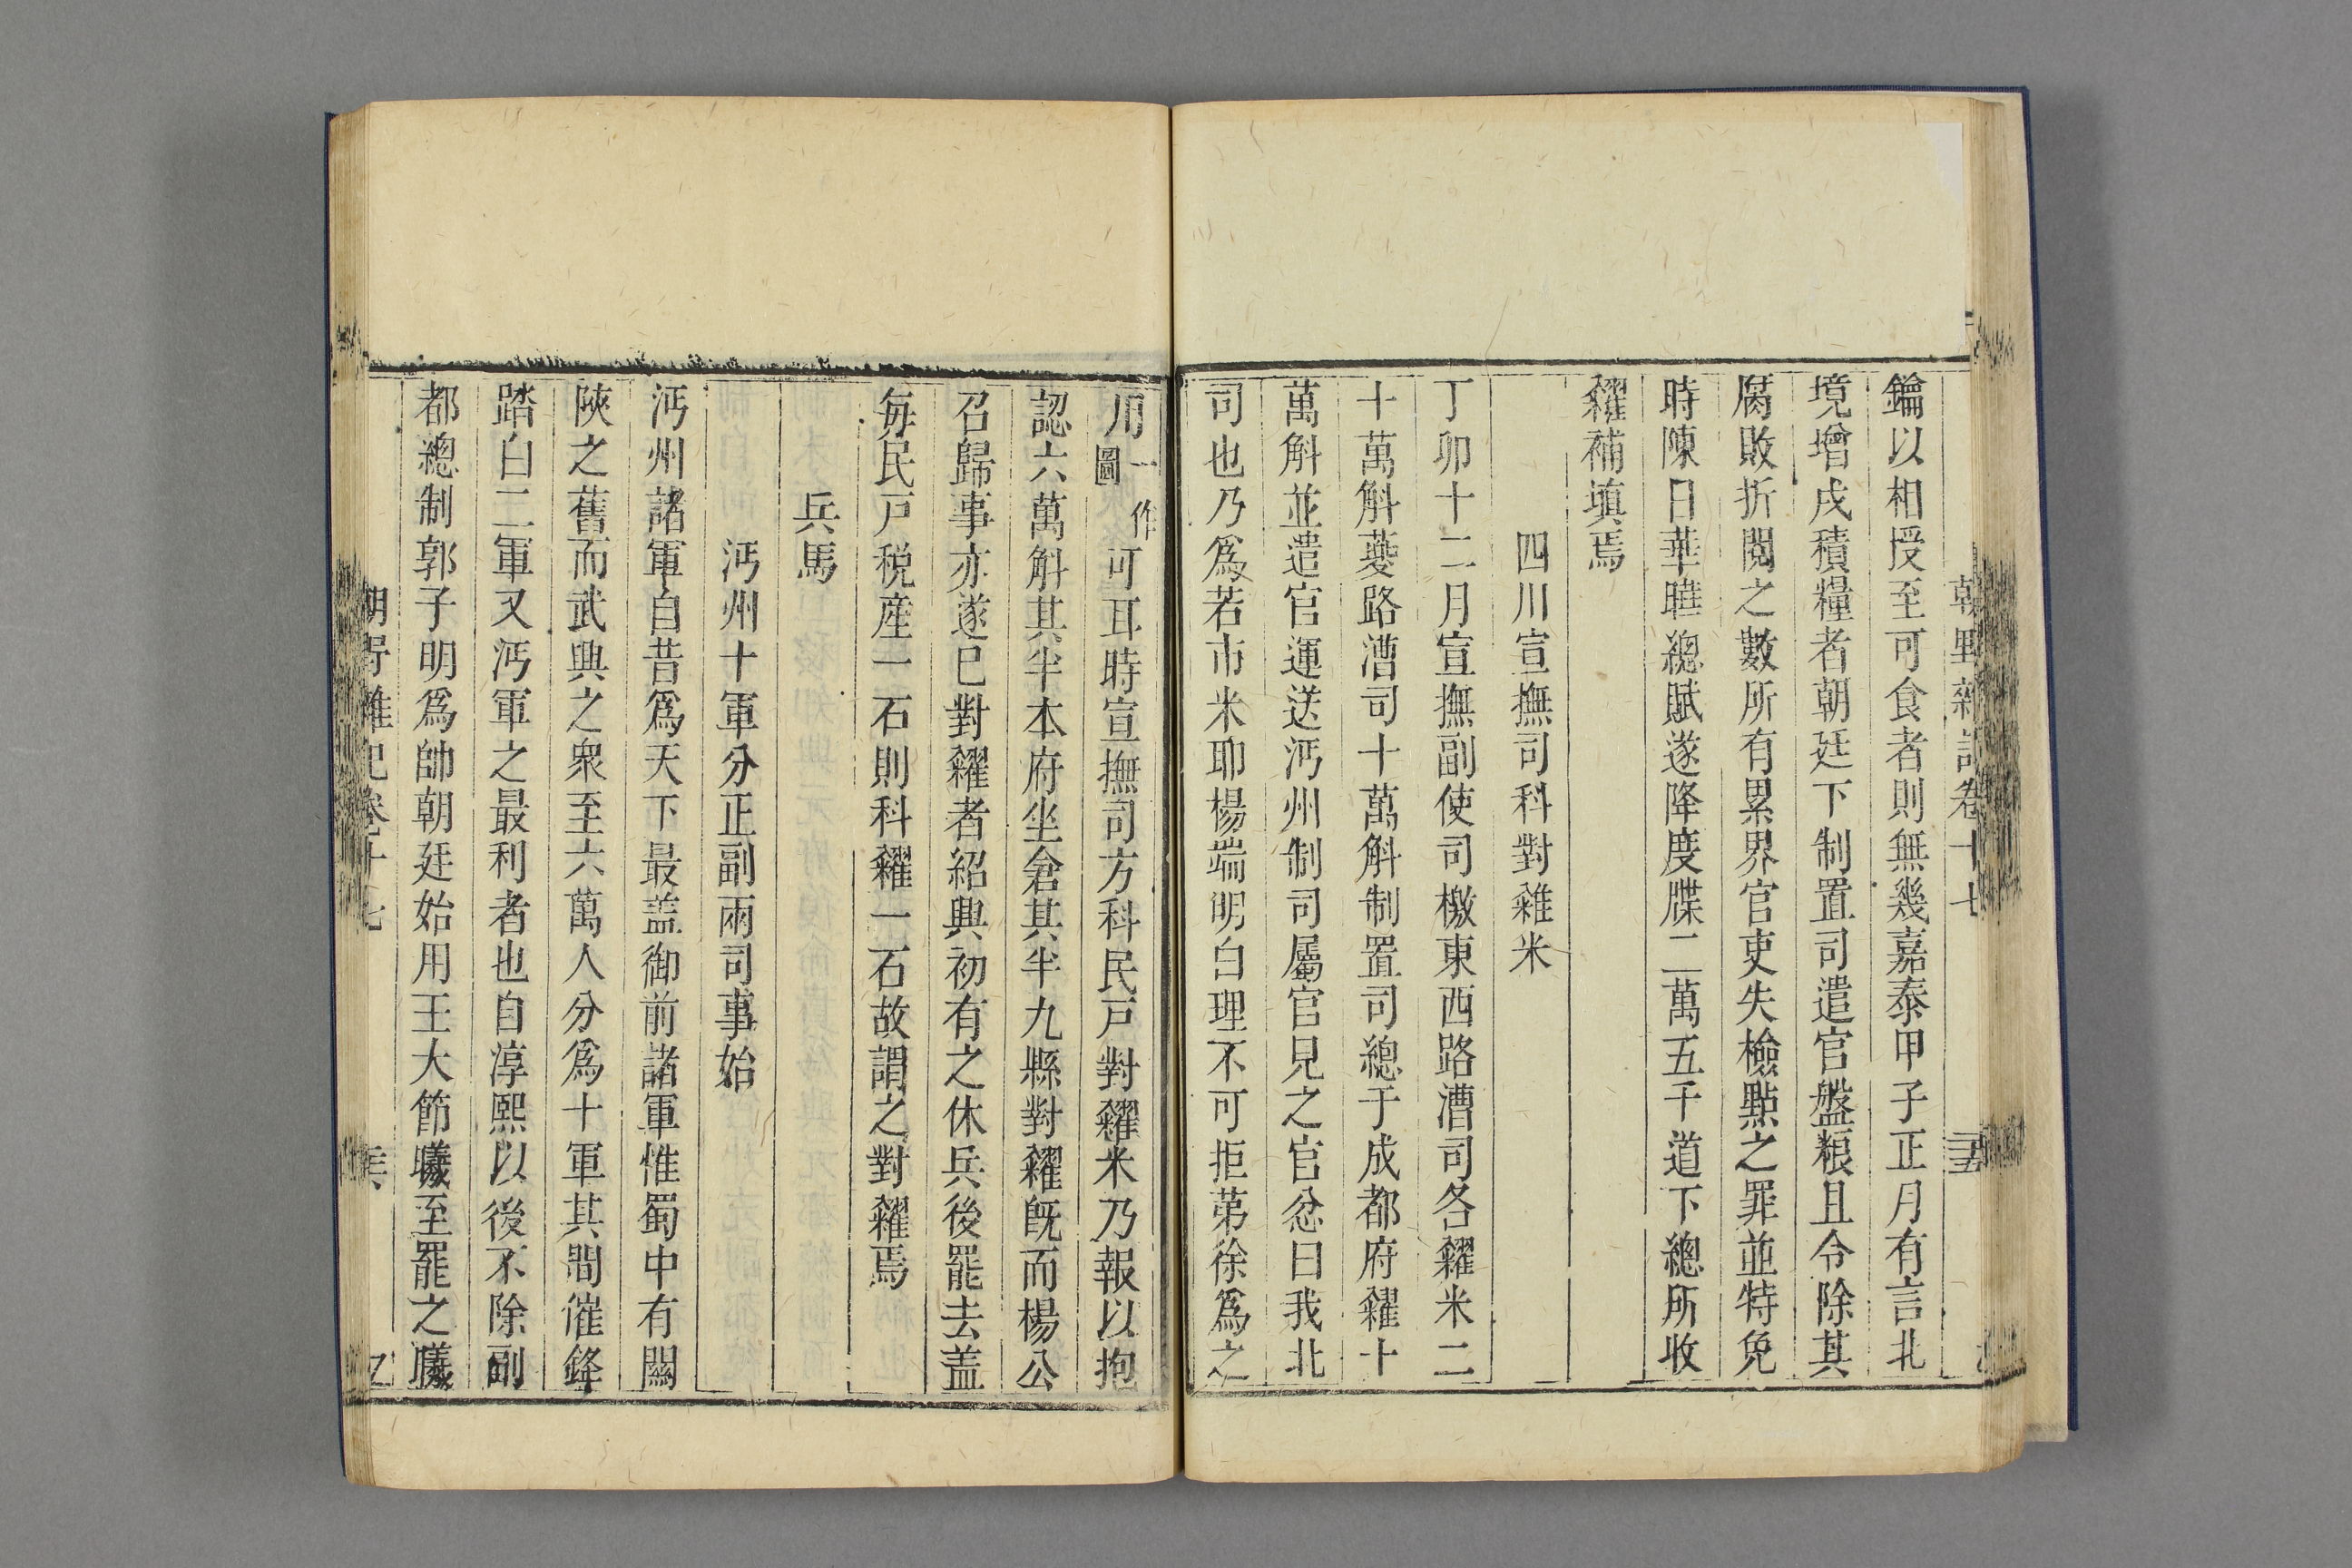 鑰以相授至可食者則無幾嘉泰甲子正月有言北
境增戍積糧者朝廷下制置司遣官盤粮且令除其
腐敗折閱之數所有累界官吏失檢點之罪並特免
時陳日華曄總賦遂降度牒二萬五千道下總所收
糴補塡焉
四川宣撫司科對糴米
丁卯十二月宣撫副使司檄東西路漕司各糴米二
十萬斛夔路漕司十萬斛制置司總于成都府糴十
萬斛並遣官運送沔州制司屬官見之官忿曰我北
司也乃爲若市米耶楊端明白理不可拒第徐爲之
用一作圖可耳時宣撫司方科民戸對糴米乃報以抱
認六萬斛其半本府坐倉其半九縣對糴旣而楊公
召歸事亦遂已對糴者紹興初有之休兵後罷去盖
每民戸税産一石則科糴一石故謂之對糴焉
兵馬
沔州十軍分正副兩司事始
沔州諸軍自昔爲天下最盖御前諸軍惟蜀中有關
陝之舊而武興之衆至六萬人分爲十軍其間催鋒
踏白二軍又沔軍之最利者也自淳熙以後不除副
都總制郭子明爲帥朝廷始用王大節曦至罷之曦
朝野雜記卷十七